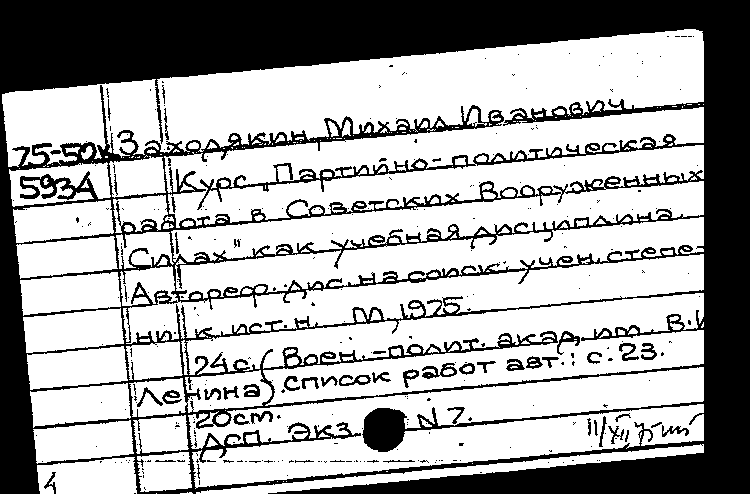 75-50к Заходякин, Михаил Иванович.
593А Курс „Партийно-политическая
работа в Советских Вооруженных
Силах" как учебная дисциплина.
Автореф. дис. на соиск. учен. степе-
ни к. ист. н. М., 1975.
24 с. (Воен.-полит. акад. им. В.И
Ленина). Список работ авт.: с. 23.
20 см.
ДСП. Экз N 7.
11/XII 75
4